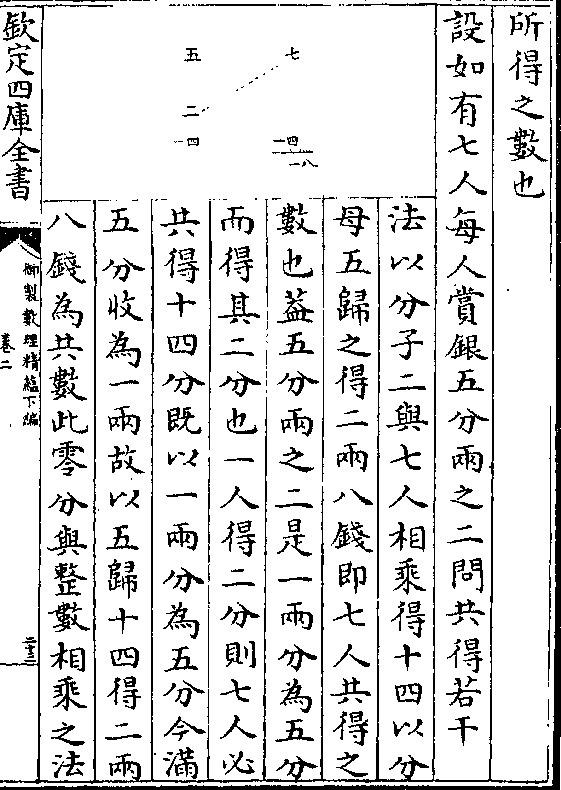 所得之數也
設如有七人每人賞銀五分兩之二問共得若干
七
一四
五
二
一四
法以分子二與七人相乘得十四以分
母五歸之得二兩八錢即七人共得之
數也葢五分兩之二是一兩分為五分
而得其二分也一人得二分則七人必
共得十四分既以一兩分為五分今滿
五分收為一兩故以五歸十四得二兩
八錢為共數此零分與整數相乘之法
欽定四庫全書
御製數理精藴下編
卷二